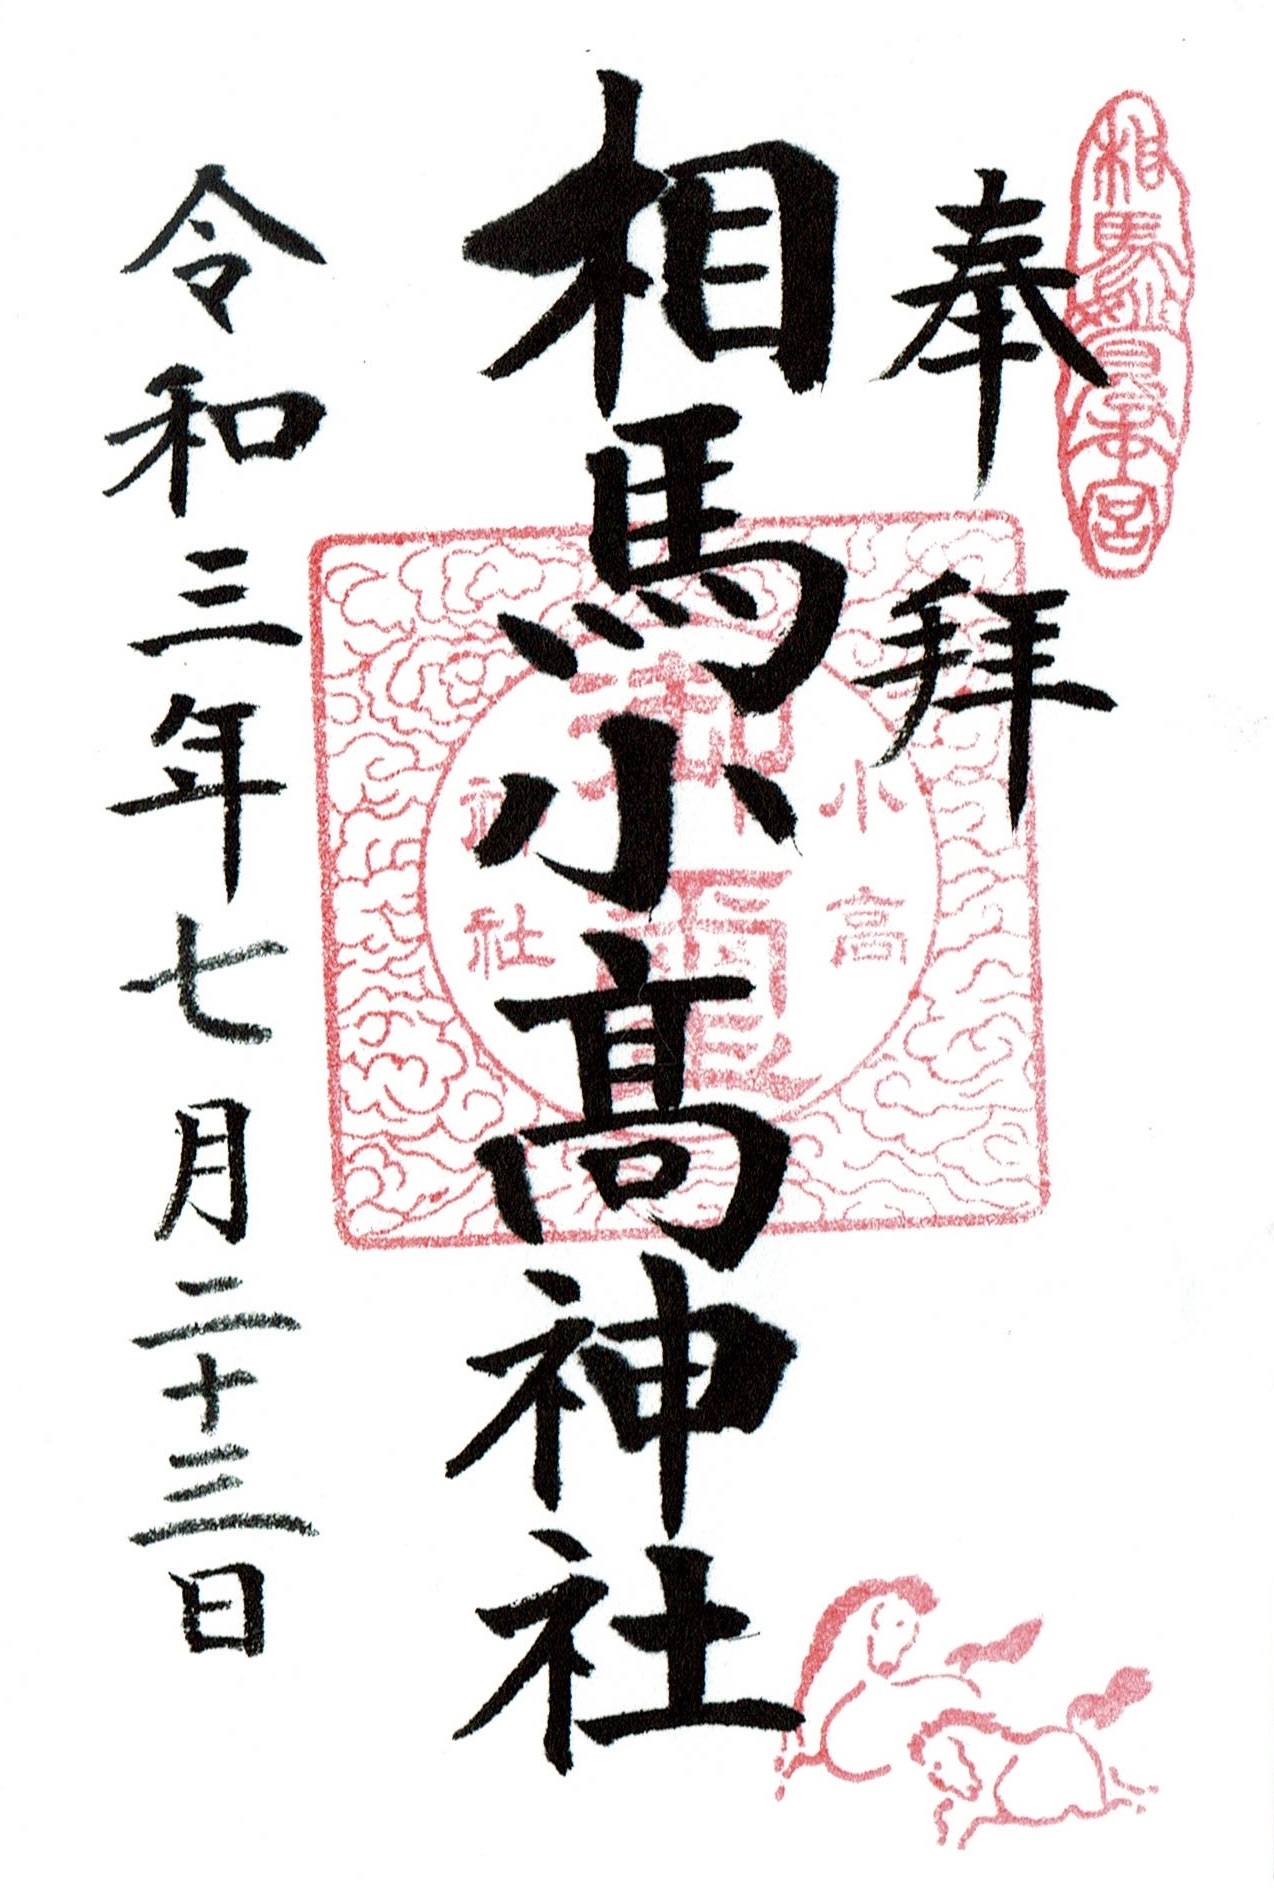 相馬妙見本宮
奉拝
相馬小髙神社
小高
神社
令和三年七月二十三日